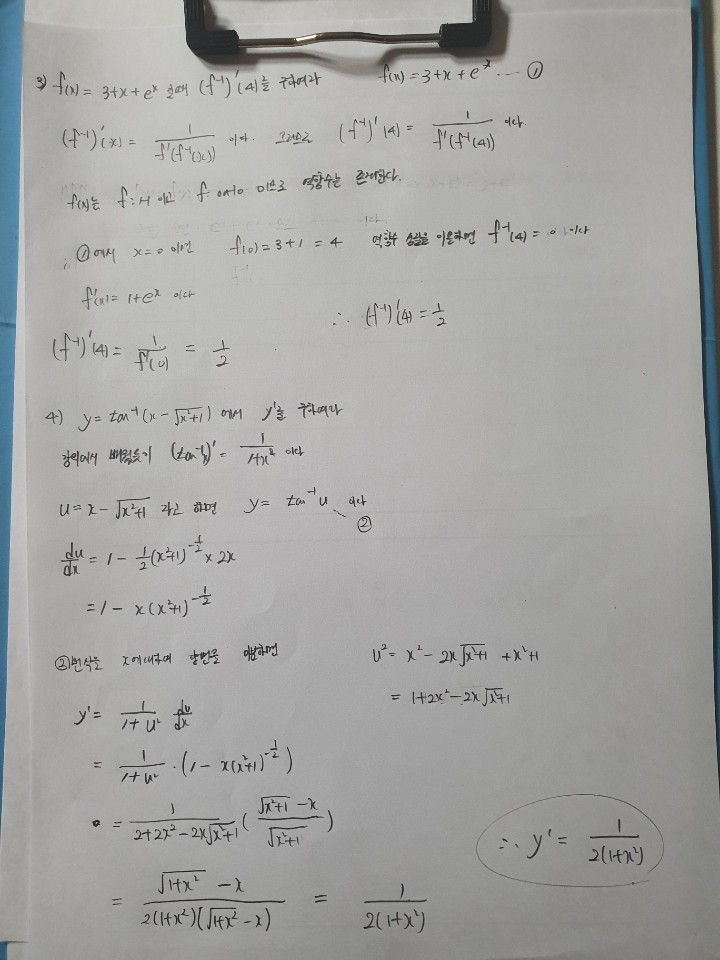 3) f(x) = 3+x+e^x 일때 (f^-1)'(4)를 구하여라 f(x) = 3+x+e^x ... ①
(f^-1)'(x) = 1/f'(f^-1(x)) 이다. 그러므로 (f^-1)'(4) = 1/f'(f^-1(4)) 이다.
f(x)는 f: 1-1 이고 f: onto 이므로 역함수는 존재한다.
①에서 x=0 이면 f(0) = 3+1 = 4 역함수 성질을 이용하면 f^-1(4) = 0 이다
f'(x) = 1+e^x 이다
∴ (f^-1)'(4) = 1/2
(f^-1)'(4) = 1/f'(0) = 1/2
4) y = tan^-1(x - √(x²+1)) 에서 y'을 구하여라
강의에서 배웠듯이 (tan^-1 x)' = 1/(1+x²) 이다
u = x - √(x²+1) 라고 하면 y = tan^-1 u 이다 ②
du/dx = 1 - 1/2(x²+1)^(-1/2) × 2x
= 1 - x(x²+1)^(-1/2)
②번식을 x에 대하여 양변을 미분하면
y' = 1/(1+u²) du/dx
= 1/(1+u²) · (1 - x(x²+1)^(-1/2))
= 1/(2+2x²-2x√(x²+1)) ( (√(x²+1) - x)/√(x²+1) )
= (√(1+x²) - x)/(2(1+x²)(√(1+x²) - x)) = 1/(2(1+x²))
u² = x² - 2x√(x²+1) + x²+1
= 1+2x² - 2x√(x²+1)
∴ y' = 1/(2(1+x²))